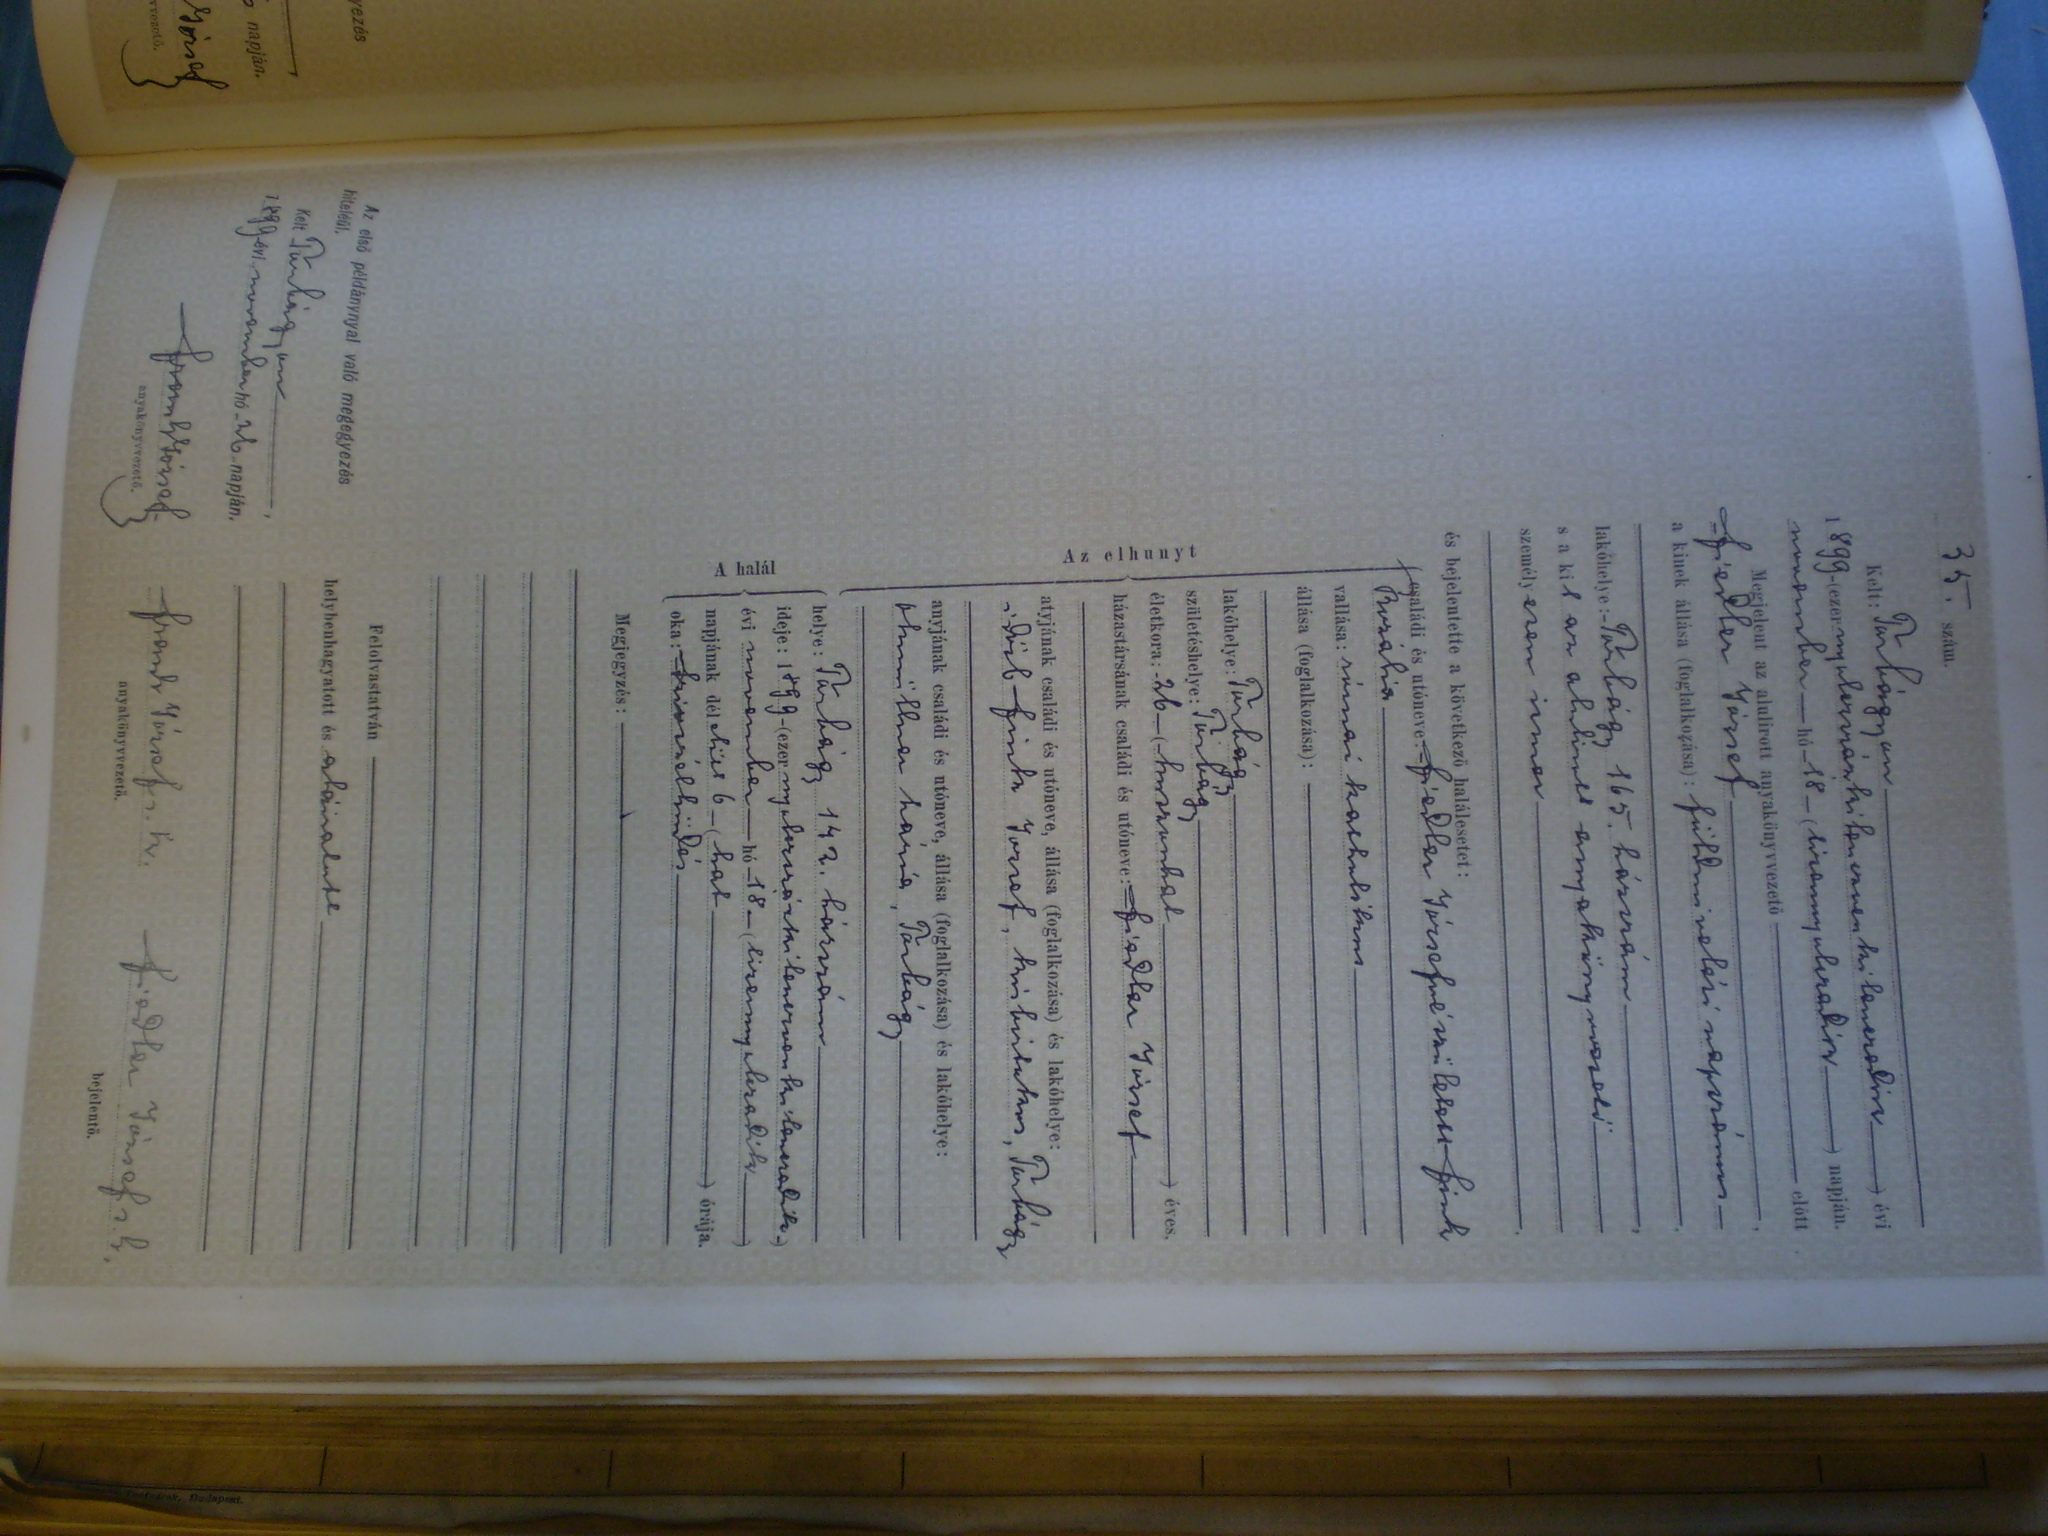 35. szám.
Kelt: Turbágyun
1899 (ezernyolczszázkilenczvenkilenczedik) évi
november hó 18 (tizennyolczadik) napján.
Megjelent az alulirott anyakönyvvezető előtt
Fiedler József,
a kinek állása (foglalkozása): földmivelési napszámos,
lakóhelye: Turbágy 165. házszám,
s a kit az alulirott anyakönyvvezető
személyesen ismer.
és bejelentette a következő halálesetet:
Az elhunyt
családi és utóneve: Fiedler Józsefné született Fink
Rozália
vallása: római katholikus
állása (foglalkozása):
lakóhelye: Turbágy
születéshelye: Turbágy
életkora: 26 (huszonhat) éves.
házastársának családi és utóneve: Fiedler József
atyjának családi és utóneve, állása (foglalkozása) és lakóhelye:
József, Turbágy
anyjának családi és utóneve, állása (foglalkozása) és lakóhelye:
Mária, Turbágy
A halál
helye: Turbágy 142. házszám
ideje: 1899 (ezernyolczszázkilenczvenkilenczedik)
évi november hó 18 (tizennyolczadik)
napjának délelőtt 6 (hat) órája.
oka:
Megjegyzés:
Felolvastatván
helybenhagyatott és aláiratott
József s. k.
anyakönyvvezető.
Fiedler József s. k.
bejelentő.
Az első példánynyal való megegyezés
hiteléül.
Kelt Turbágyun,
1899 évi november hó 26 napján.
József
anyakönyvvezető.
yezés
napján.
József
vvezető.
Budapest.